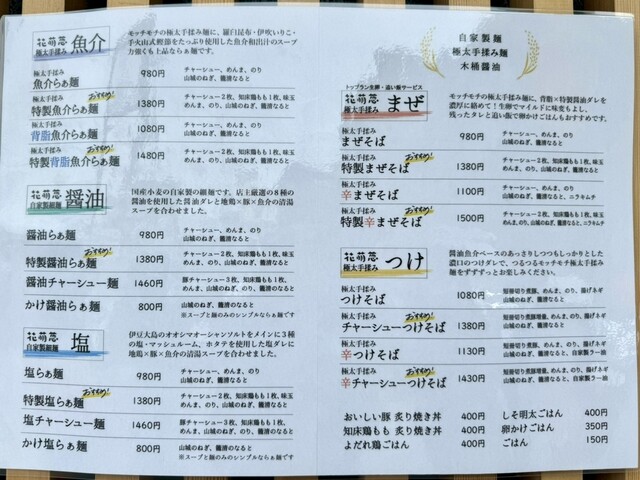 花萌葱
極太手揉み
魚介
モッチモチの極太手揉み麺に、羅臼昆布・伊吹いりこ・
千火山式鰹節をたっぷり使用した魚介和出汁のスープ
力強くも上品ならぁ麺です。
極太手揉み
魚介らぁ麺 980円 チャーシュー、めんま、のり 山城のねぎ、籠清なると
極太手揉み
特製魚介らぁ麺 おすすめ! 1380円 チャーシュー2枚、知床鶏もも1枚、味玉 めんま、のり、山城のねぎ、籠清なると
極太手揉み
背脂魚介らぁ麺 1080円 チャーシュー、めんま、のり 山城のねぎ、籠清なると
極太手揉み
特製背脂魚介らぁ麺 おすすめ! 1480円 チャーシュー2枚、知床鶏もも1枚、味玉 めんま、のり、山城のねぎ、籠清なると
花萌葱
自家製細麺
醤油
国産小麦の自家製の細麺です。店主厳選の8種の
醤油を使用した醤油ダレと地鶏×豚×魚介の清湯
スープを合わせました。
醤油らぁ麺 980円 チャーシュー、めんま、のり 山城のねぎ、籠清なると
特製醤油らぁ麺 おすすめ! 1380円 チャーシュー2枚、知床鶏もも1枚、味玉 めんま、のり、山城のねぎ、籠清なると
醤油チャーシュー麺 1460円 豚チャーシュー3枚、鶏もも1枚、めんま、 のり、山城のねぎ、籠清のなると
かけ醤油らぁ麺 800円 山城のねぎ、籠清のなると ※スープと麺のみのシンプルならぁ麺です
花萌葱
自家製細麺
塩
伊豆大島のオオシマオーシャンソルトをメインに3種
の塩・マッシュルーム、ホタテを使用した塩ダレに
地鶏×豚×魚介の清湯スープを合わせました。
塩らぁ麺 980円 チャーシュー、めんま、のり 山城のねぎ、籠清なると
特製塩らぁ麺 おすすめ! 1380円 チャーシュー2枚、知床鶏もも1枚、味玉 めんま、のり、山城のねぎ、籠清なると
塩チャーシュー麺 1460円 豚チャーシュー3枚、鶏もも1枚、めんま、 のり、山城のねぎ、籠清のなると
かけ塩らぁ麺 800円 山城のねぎ、籠清のなると ※スープと麺のみのシンプルならぁ麺です
自家製麺
極太手揉み麺
木桶醤油
トッブラン生卵・追い飯サービス
花萌葱
極太手揉み
まぜ
モッチモチの極太手揉み麺に、背脂×特製醤油ダレを
濃厚に絡めて!生卵でマイルドに味変もよし、
残ったタレと追い飯で卵かけごはんもおすすめです。
極太手揉み
まぜそば 980円 チャーシュー、めんま、のり 山城のねぎ、籠清なると
極太手揉み
特製まぜそば おすすめ! 1380円 チャーシュー2枚、知床鶏もも1枚、味玉 めんま、のり、山城のねぎ、籠清なると
極太手揉み
辛まぜそば 1100円 チャーシュー、めんま、のり 山城のねぎ、籠清なると、ニラキムチ
極太手揉み
特製辛まぜそば おすすめ! 1500円 チャーシュー2枚、知床鶏もも1枚、味玉、めんま、 のり、山城のねぎ、籠清なると、ニラキムチ
花萌葱
極太手揉み
つけ
醤油魚介ベースのあっさりしつつもしっかりとした
濃口のつけダレで、つるつるモッチモチ極太手揉み
麺をずずずっとお楽しみください。
極太手揉み
つけそば 1080円 短冊切り煮豚、めんま、のり、揚げネギ 山城のねぎ、籠清なると
極太手揉み
チャーシューつけそば おすすめ! 1380円 短冊切り煮豚増量、めんま、のり、揚げネギ 山城のねぎ、籠清なると
極太手揉み
辛つけそば 1130円 短冊切り煮豚、めんま、のり、揚げネギ 山城のねぎ、籠清なると、自家製ラー油
極太手揉み
辛チャーシューつけそば おすすめ! 1430円 短冊切り煮豚増量、めんま、のり、揚げネギ 山城のねぎ、籠清なると、自家製ラー油
おいしい豚 炙り焼き丼 400円 しそ明太ごはん 400円
知床鶏もも 炙り焼き丼 400円 卵かけごはん 350円
よだれ鶏ごはん 400円 ごはん 150円